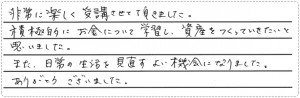 非常に楽しく受講させて頂きました。
積極的にお金について学習し、資産をつくっていきたいと
思いました。
また、日常の生活を見直すよい機会になりました。
ありがとうございました。